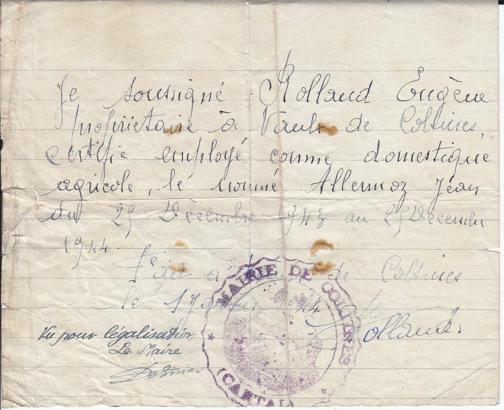 Je soussigné Rolland Eugène
propriétaire à Vaulx de Coltines,
certifie employé comme domestique
agricole, le nommé Allermoz Jean
du 29 Décembre 1943 au 29 Décembre
1944
Fait à de Coltines
le 17 1944
Rolland
Vu pour légalisation
Le Maire
MAIRIE DE COLTINES
(CANTAL)